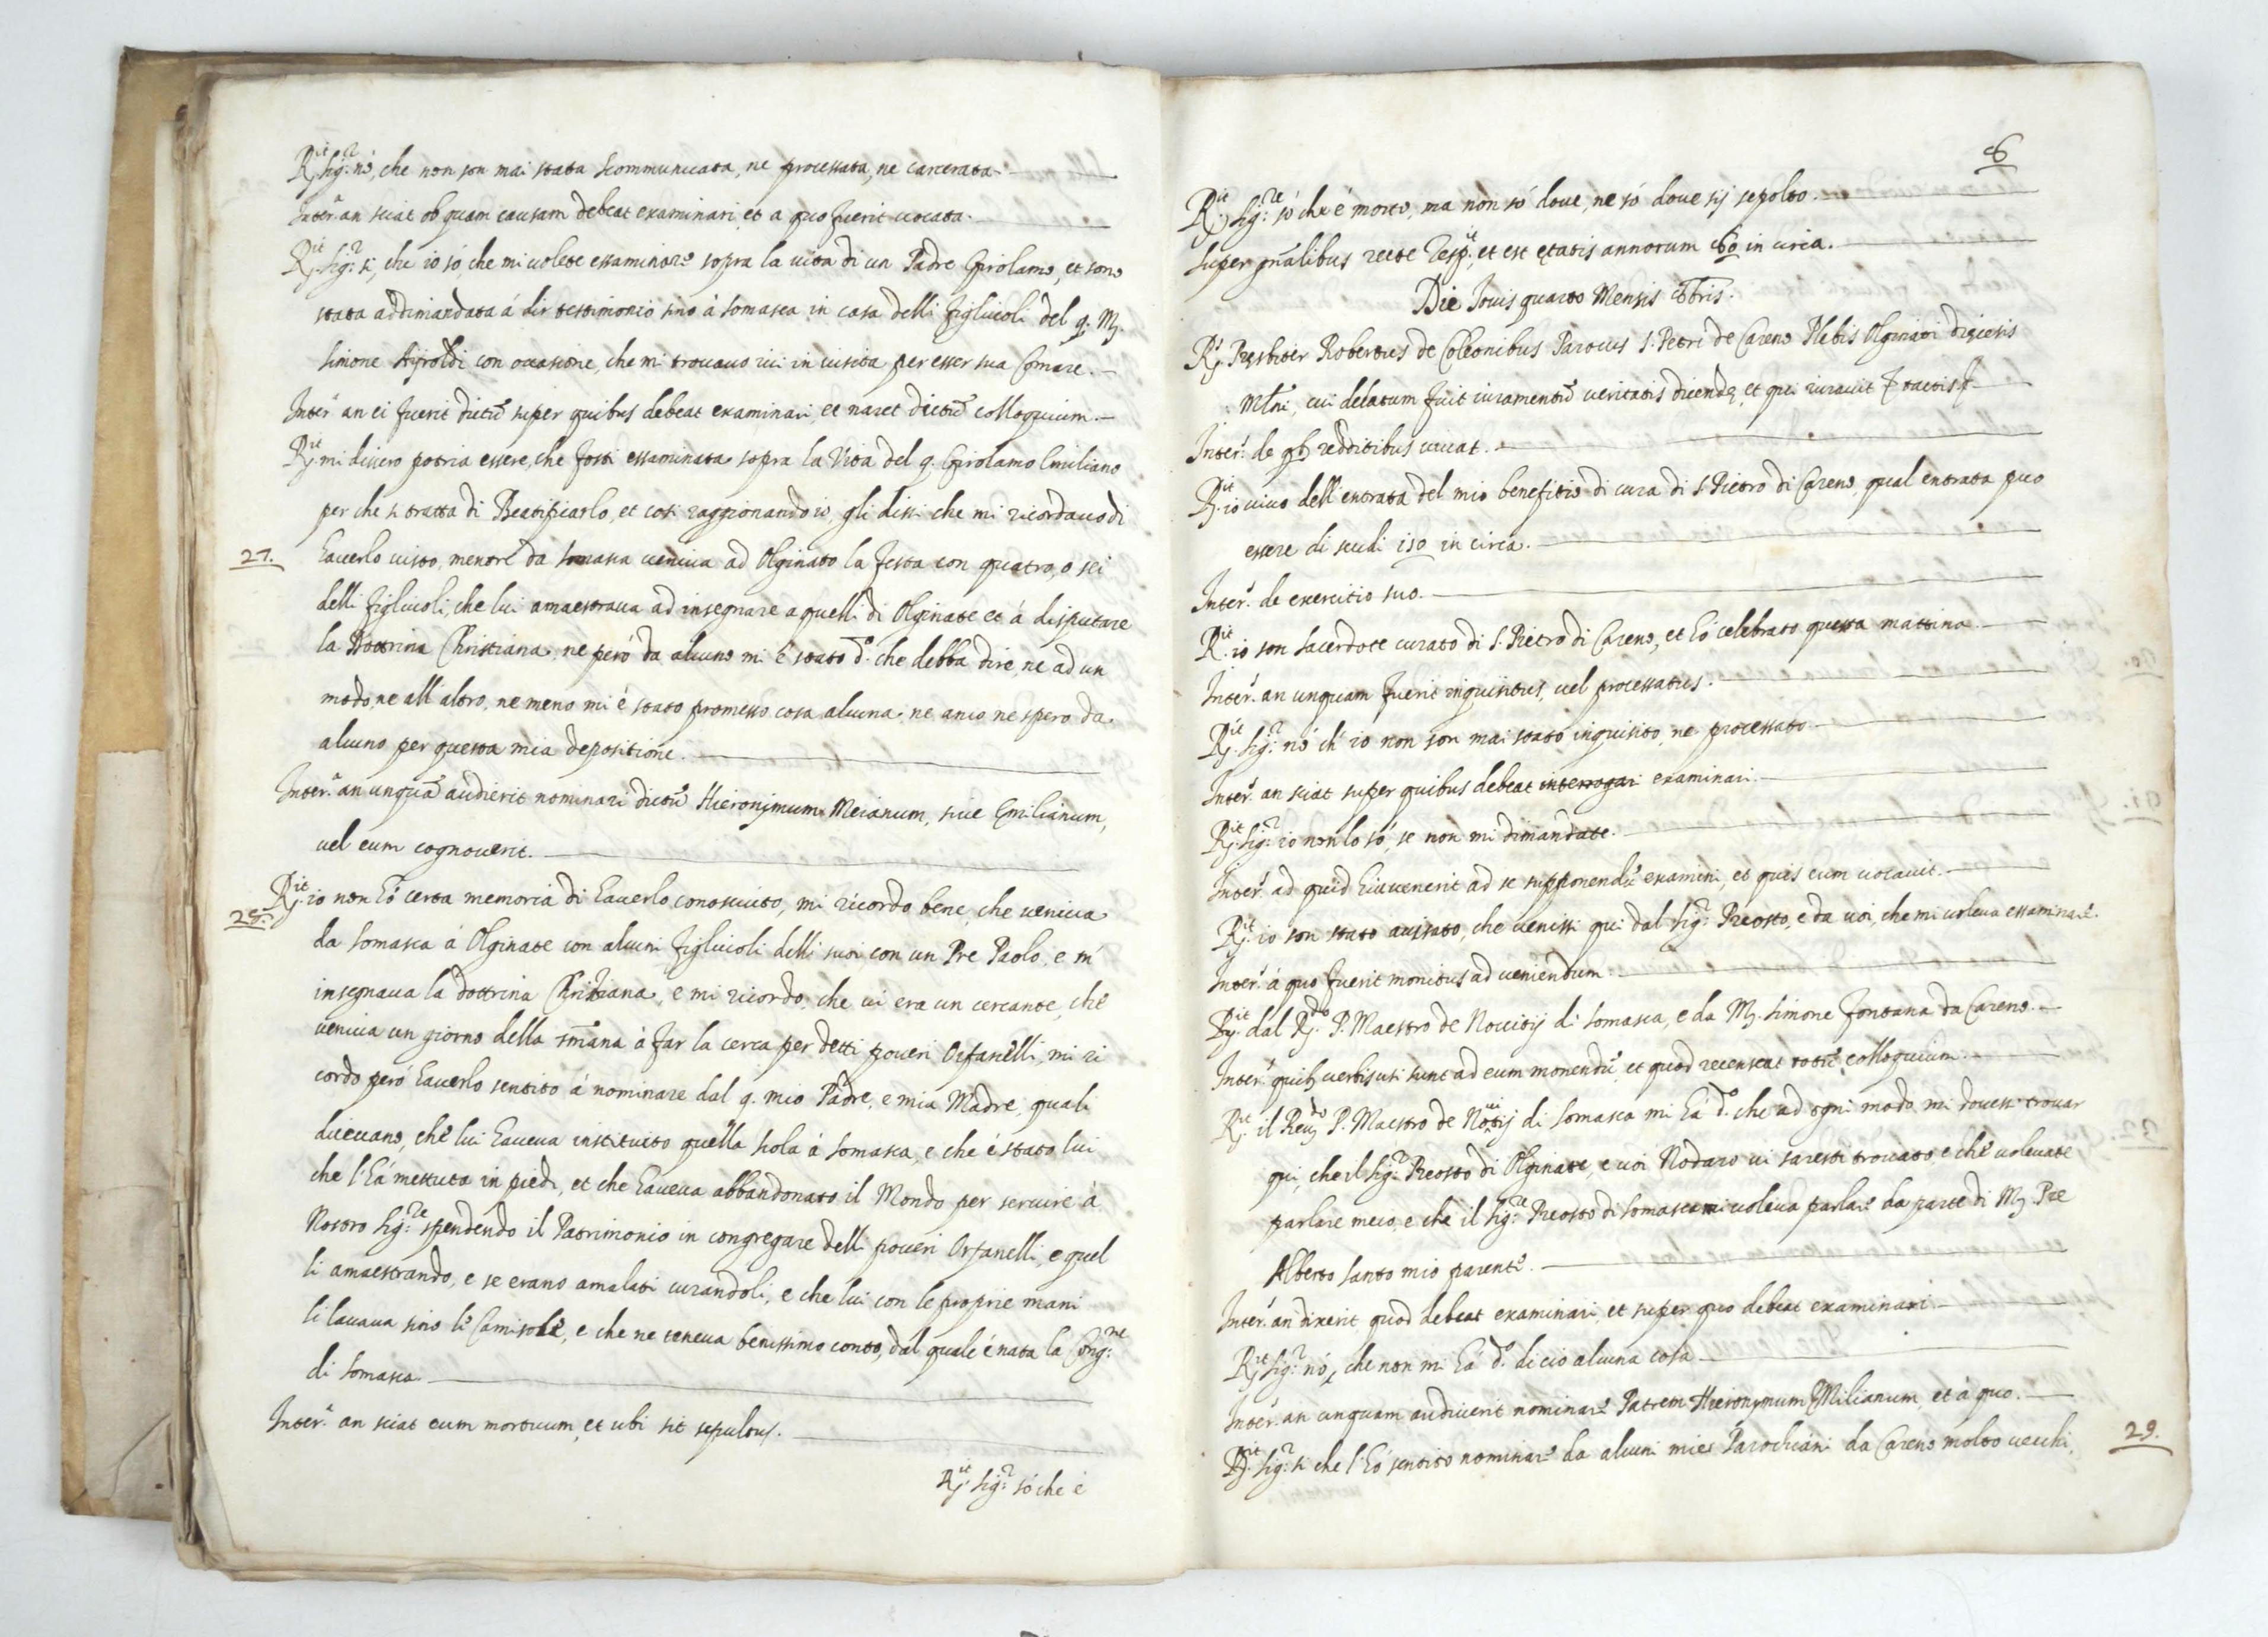 R.it Sig.r nò, che non son mai stata scommunicata, ne processata, ne carcerata.
Inter.a an sciat ob quam causam debeat examinari, et a quo fuerit vocata.
R.it Sig.r si, che io sò, che mi volete essaminare sopra la vita di un Padre Girolamo, et sono
stata addimandata á dir testimonio sino à Somasca in casa delli figliuoli del q. M.
Simone Airoldi con occasione, che mi trovavo ivi in visita per esser sua Comare.
Inter.a an ei fuerit dictũ super quibus debeat examinari, et naret dictũ colloquium.
R.it mi dissero potria essere, che fosti essaminata sopra la Vita del q. Girolamo Emiliano
per che si tratta di Beatificarlo, et così raggionando io, gli dissi che mi ricordavo di
27. haverlo visto, mentre da Somasca veniva ad Olginato la festa con quatro, o sei
delli figliuoli, che lui amaestrava ad insegnare a quelli di Olginate et á disputare
la Dottrina Christiana, ne però da alcuno mi è stato d.o che debba dire, ne ad un
modo, ne all altro, ne meno mi é stato promesso cosa alcuna, ne anco ne spero da
alcuno per questa mia depositione.
Inter.a an unquã audierit nominari dictũ Hieronymum Meianum, sive Emilianum,
vel eum cognoverit.
28. R.it io non hò certa memoria di haverlo conosciuto, mi ricordo bene, che veniva
da Somasca à Olginate con alcuni figliuoli delli suoi con un Pre Paolo, e m'
insegnava la dottrina Christiana, e mi ricordo, che vi era un cercante, che
veniva un giorno della smãna à far la cerca per detti poveri Orfanelli, mi ri
cordo peró haverlo sentito á nominare dal q. mio Padre, e mia Madre, quali
dicevano, che lui haveva instituito quella scola à Somasca, e che é stato lui
che l'há mettuta in piedi, et che haveva abbandonato il Mondo per servire à
Nostro Sig.re spendendo il Patrimonio in congregare delli poveri Orfanelli, e quel
li amaestrando, e se erano amalati curandoli, e che lui con le proprie mani
li lavava sino le Camisole, e che ne teneva benissimo conto, dal quale é nata la Cong.ne
di Somasca
Inter.a an sciat eum mortuum, et ubi sit sepultus.
R.it Sig.r sò che é
6
R.it Sig.re sò che é morto, ma non só dove, ne só dove sij sepolto.
Super gñalibus recte resp.it, et est ętatis annorum 60 in circa.
Die Iovis quarto Mensis 8bris.
R. Presbiter Robertus de Coleonibus Parocus S. Petri de Careno Plebis Olginati diocesis
Mlñi, cui delatum fuit iuramentũ veritatis dicendę, et qui iuravit tactis
Inter.r de qb redditibus vivat.
R.it io vivo dell'entrata del mio benefitio di cura di S. Pietro di Careno, qual entrata puo
essere di scudi 150 in circa.
Inter.r de exercitio suo.
R.it io son Sacerdote curato di S. Pietro di Careno, et hó celebrato questa mattina.
Inter.r an unquam fuerit inquisitus, vel processatus.
R.it Sig.r nò ch'io non son mai stato inquisito, ne processato
Inter.r an sciat super quibus debeat interrogari examinari.
R.it Sig.r io non lo só, se non mi dimandate.
Inter.r ad quid huc venerit ad se supponendũ examini, et quis eum vocavit.
R.it io son stato avisato, che venissi qui dal Sig.r Preosto, e da voi, che mi voleva essaminare.
Inter.r á quo fuerit monitus ad veniendum.
R.it dal R.do P. Maestro de Novitij di Somasca, e da M. Simone Fontana da Careno.
Inter.r quib verbis usi sunt ad eum monendũ, et quod recenseat totũ colloquium.
R.it il Revdo P. Maestro de Novitij di Somasca mi há d.o che ad ogni modo mi dovessi trovar
qui, che il Sig.r Preosto di Olginate, e voi Nodaro vi saresti trovato e che volevate
parlare meco, e che il Sig.r Preosto di Somasca mi voleva parlare da parte di M. Pre
Alberto Santo mio parente.
Inter.r an dixerit quod debeat examinari, et super quo debeat examinari
R.it Sig.r nó, che non mi há d.o di ciò alcuna cosa
Inter.r an unquam audiverit nominare Patrem Hieronymum Milianum, et à quo.
R.it Sig.r si che l'hó sentito nominare da alcuni miei Parochiani da Careno molto vecchi, 29.